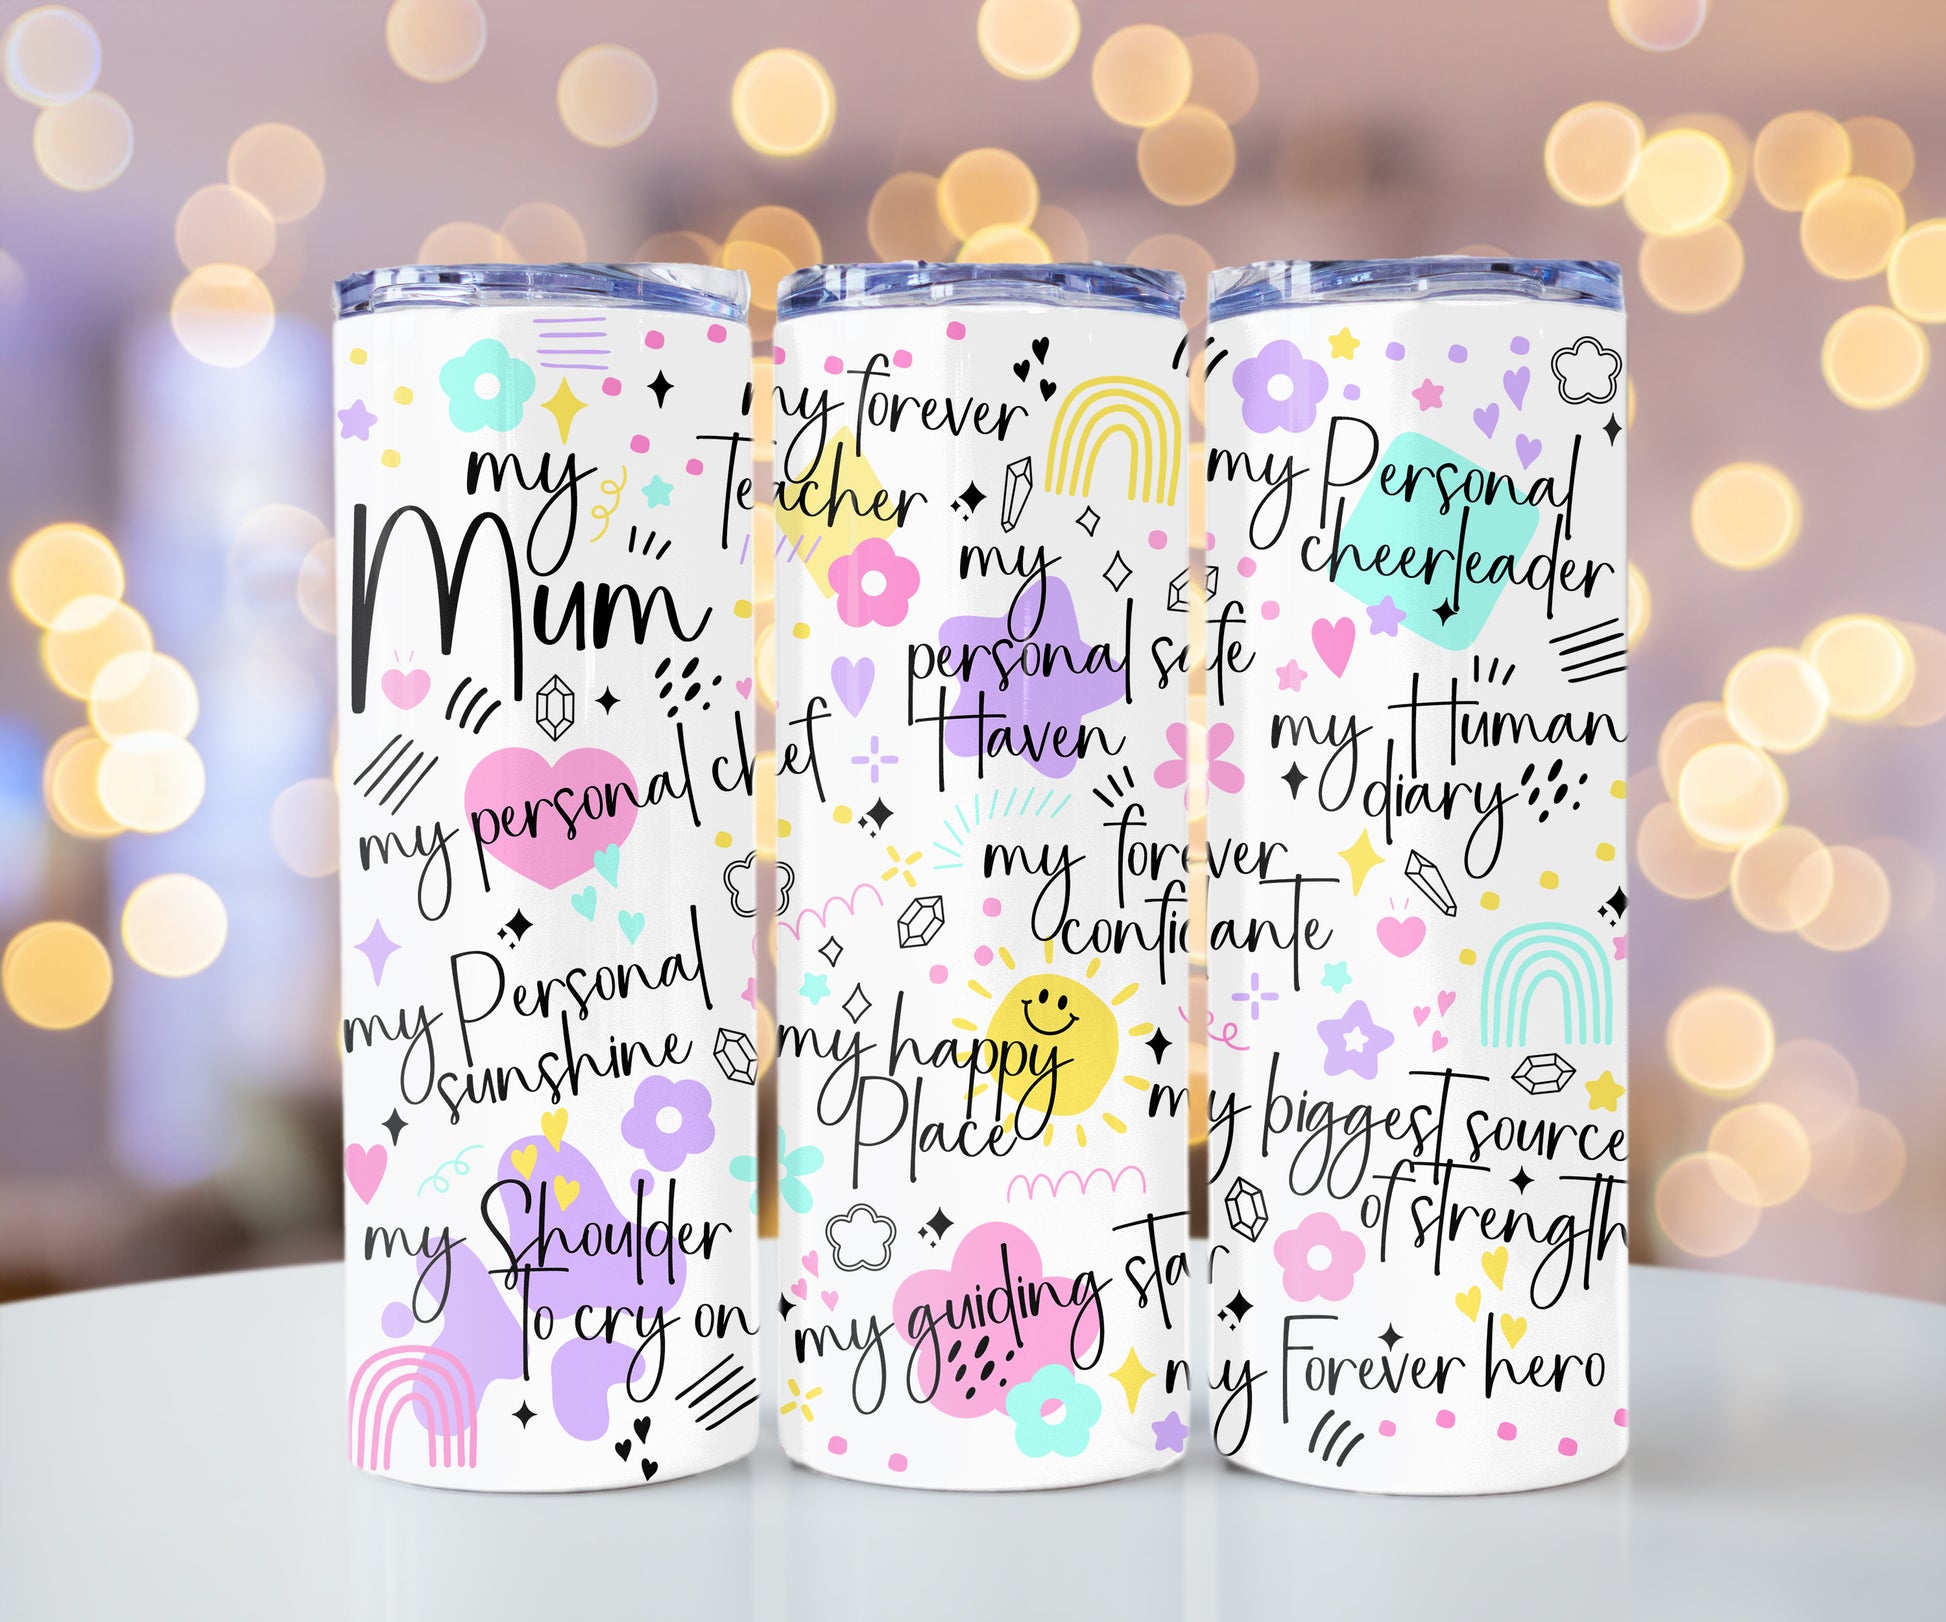 my
Mum
my personal chef
my Personal
sunshine
my Shoulder
To cry on
my forever
Teacher
my
personal safe
Haven
my forever
confidante
my happy
Place
my guiding star
my Personal
cheerleader
my Human
diary
my biggest source
of strength
my Forever hero